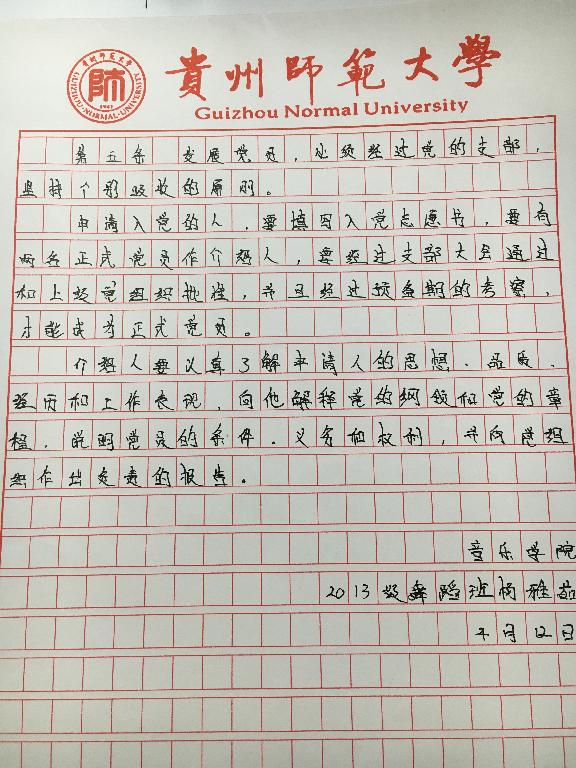 貴州師範大學
Guizhou Normal University
貴州师范大学
GUIZHOU·NORMAL·UNIVERSITY
1941
第五条 发展党员，必须经过党的支部，
坚持个别吸收的原则。
申请入党的人，要填写入党志愿书，要有
两名正式党员作介绍人，要经过支部大会通过
和上级党组织批准，并且经过预备期的考察，
才能成为正式党员。
介绍人要认真了解申请人的思想、品质、
经历和工作表现，向他解释党的纲领和党的章
程，说明党员的条件、义务和权利，并向党组
织作出负责的报告。
音乐学院
2013级舞蹈班杨雅茹
月12日